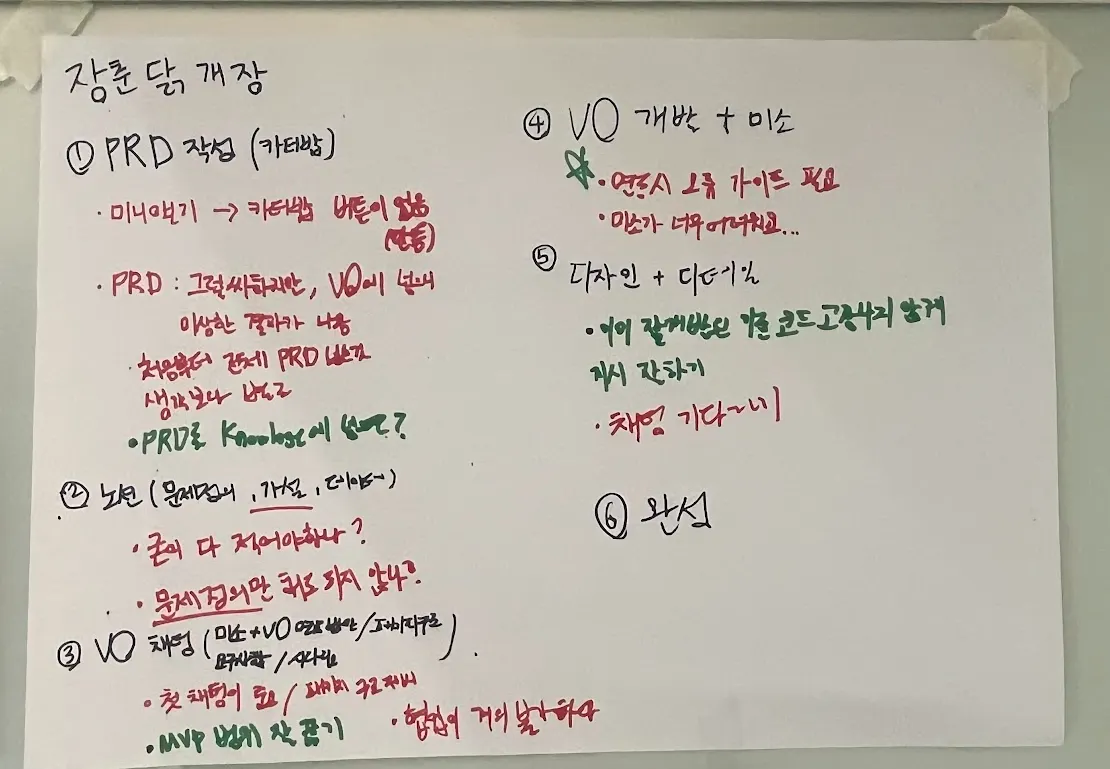 장훈 닭, 개장
① PRD 작성 (카터밥)
· 미니인보기 → 카터밥 버튼이 없음
(반응)
· PRD : 그럴싸하지만, VO에 넣니
이상한 결과가 나옴
· 처음부터 전체 PRD
생각보다 별로
· PRD를 에 넣으면?
② 노션 (문제정의, 가설, 데이터)
· 굳이 다 적어야하나?
· 문제정의만 해도 되지 않나?
③ VO 채팅 (미소+VO 연동 방안/페이지구조
요구사항 /
)
· 첫 채팅이 중요 / 페이지 구조
· MVP 범위 잘 끊기
· 협업이 거의 불가하다
④ VO 개발 + 미소
· 연동시 오류 가이드 필요
· 미소가 너무 어려워요...
⑤ 디자인 + 디테일
· 이미 잘 개발된 기존 코드 고장나지 않게
지시 잘하기
· 채팅 기다~니
⑥ 완성